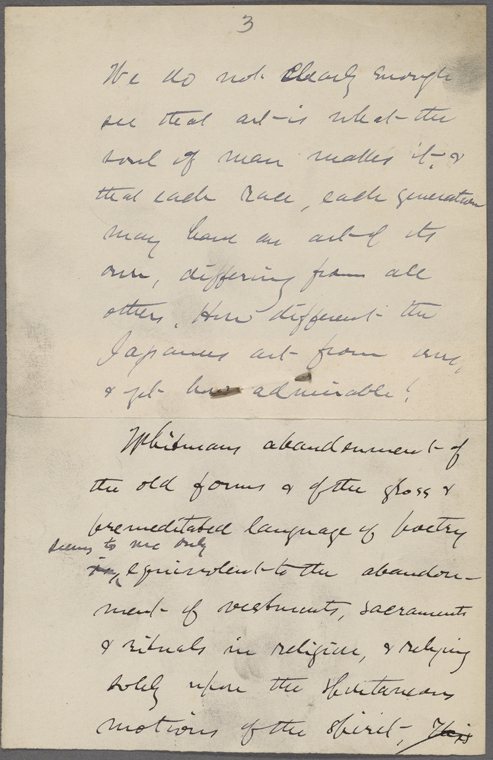 3
We do not clearly enough
see that art is what the
soul of man makes it, &
that each race, each generation
may have an art of its
own, differing from all
others. How different the
Japanese art from ours,
& yet how admirable!
Whitmans abandonment of
the old forms & of the gloss &
premeditated language of poetry
seems to me only
is equivolent to the abandon-
ment of vestments, sacraments
& rituals in religion, & relying
solely upon the spontaneous
motions of the spirit, This